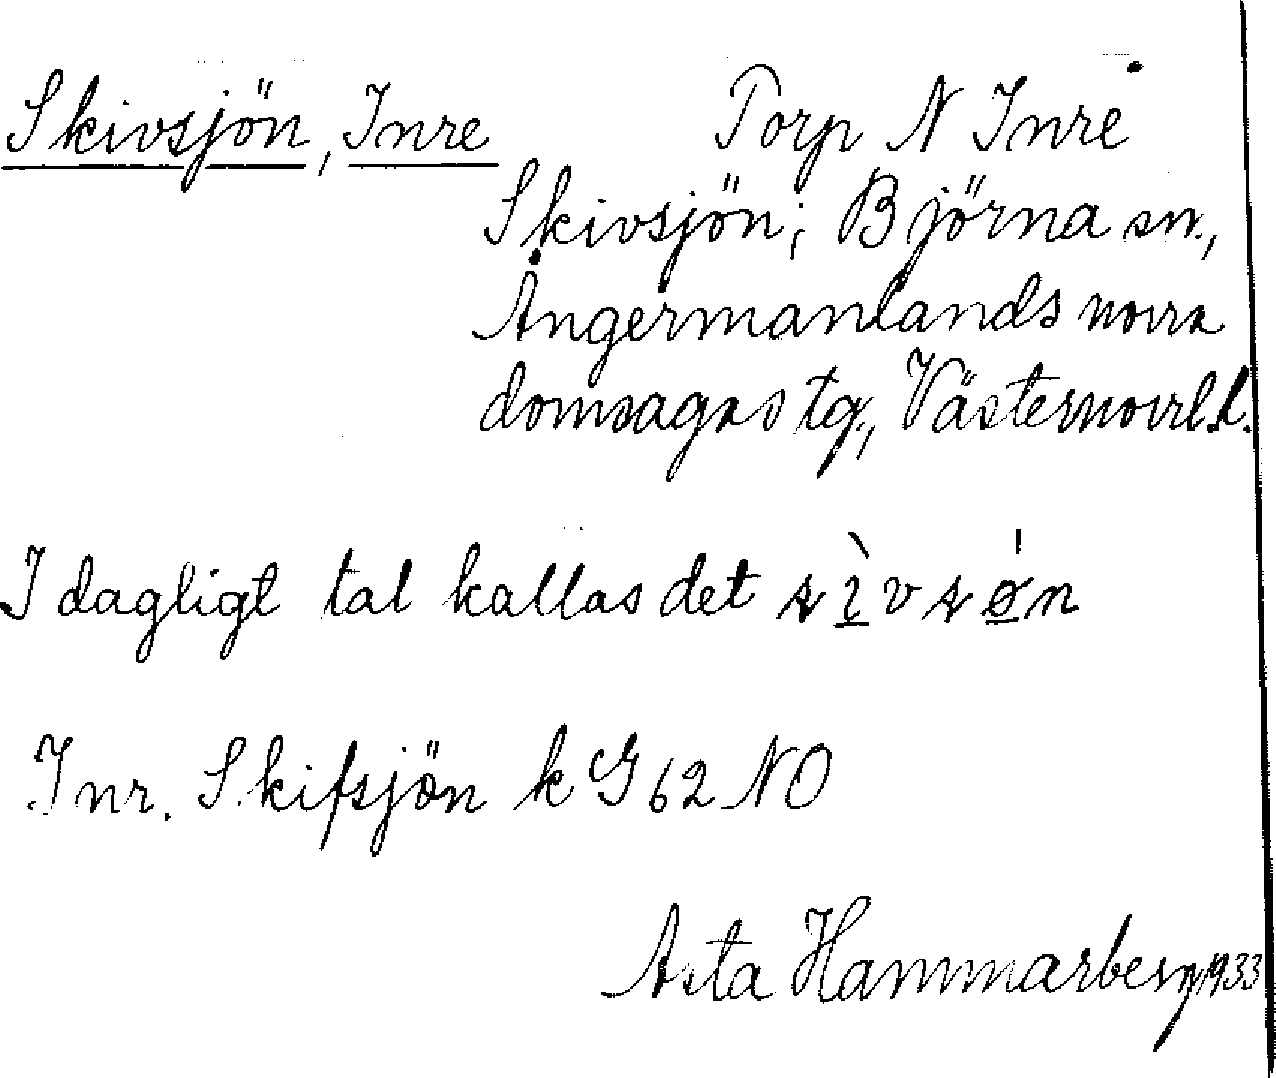 Skivsjön, Inre Torp N Inre
Skivsjön; Björna sn.,
Ångermanlands norra
domsagas tg., Västernorrl.l.
I dagligt tal kallas det
Inr. Skifsjön k G 62 NO
Asta Hammarberg 1933